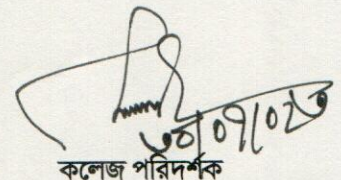 ৩০/০৭/০২৩
কলেজ পরিদর্শক